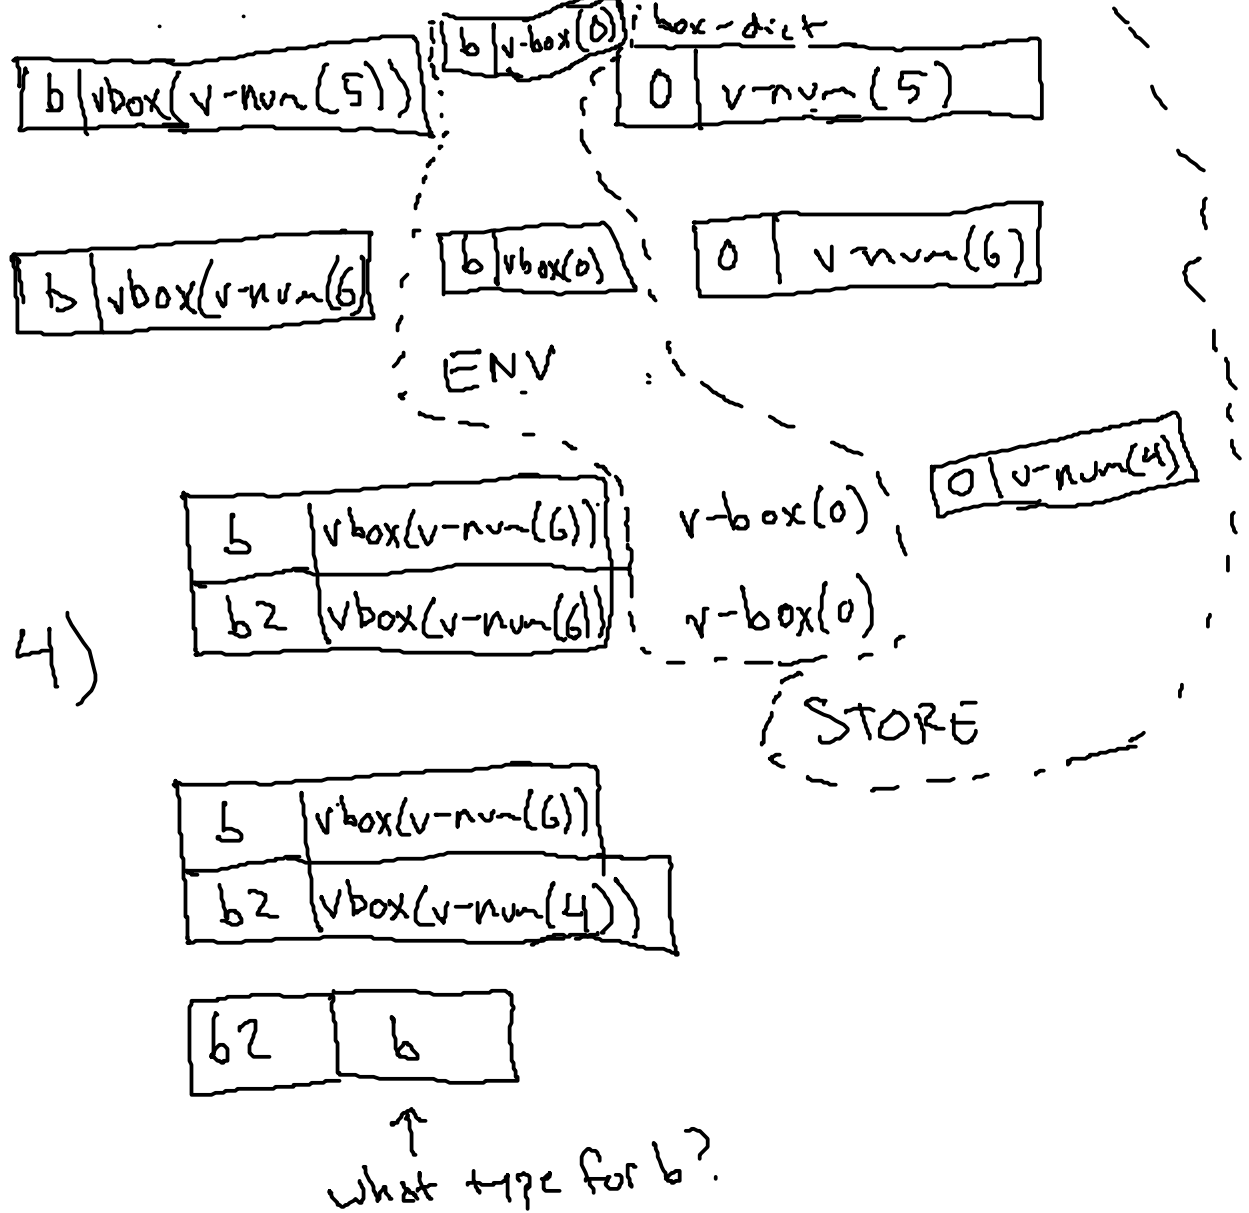 b v-box(0) : box-dict
b vbox(v-num(5)) 0 v-num(5)
b vbox(v-num(6) b vbox(0) 0 v-num(6)
ENV
0 v-num(4)
b vbox(v-num(6)) v-box(0)
b2 vbox(v-num(6)) v-box(0)
4)
STORE
b vbox(v-num(6))
b2 vbox(v-num(4))
b2 b
↑
what type for b?